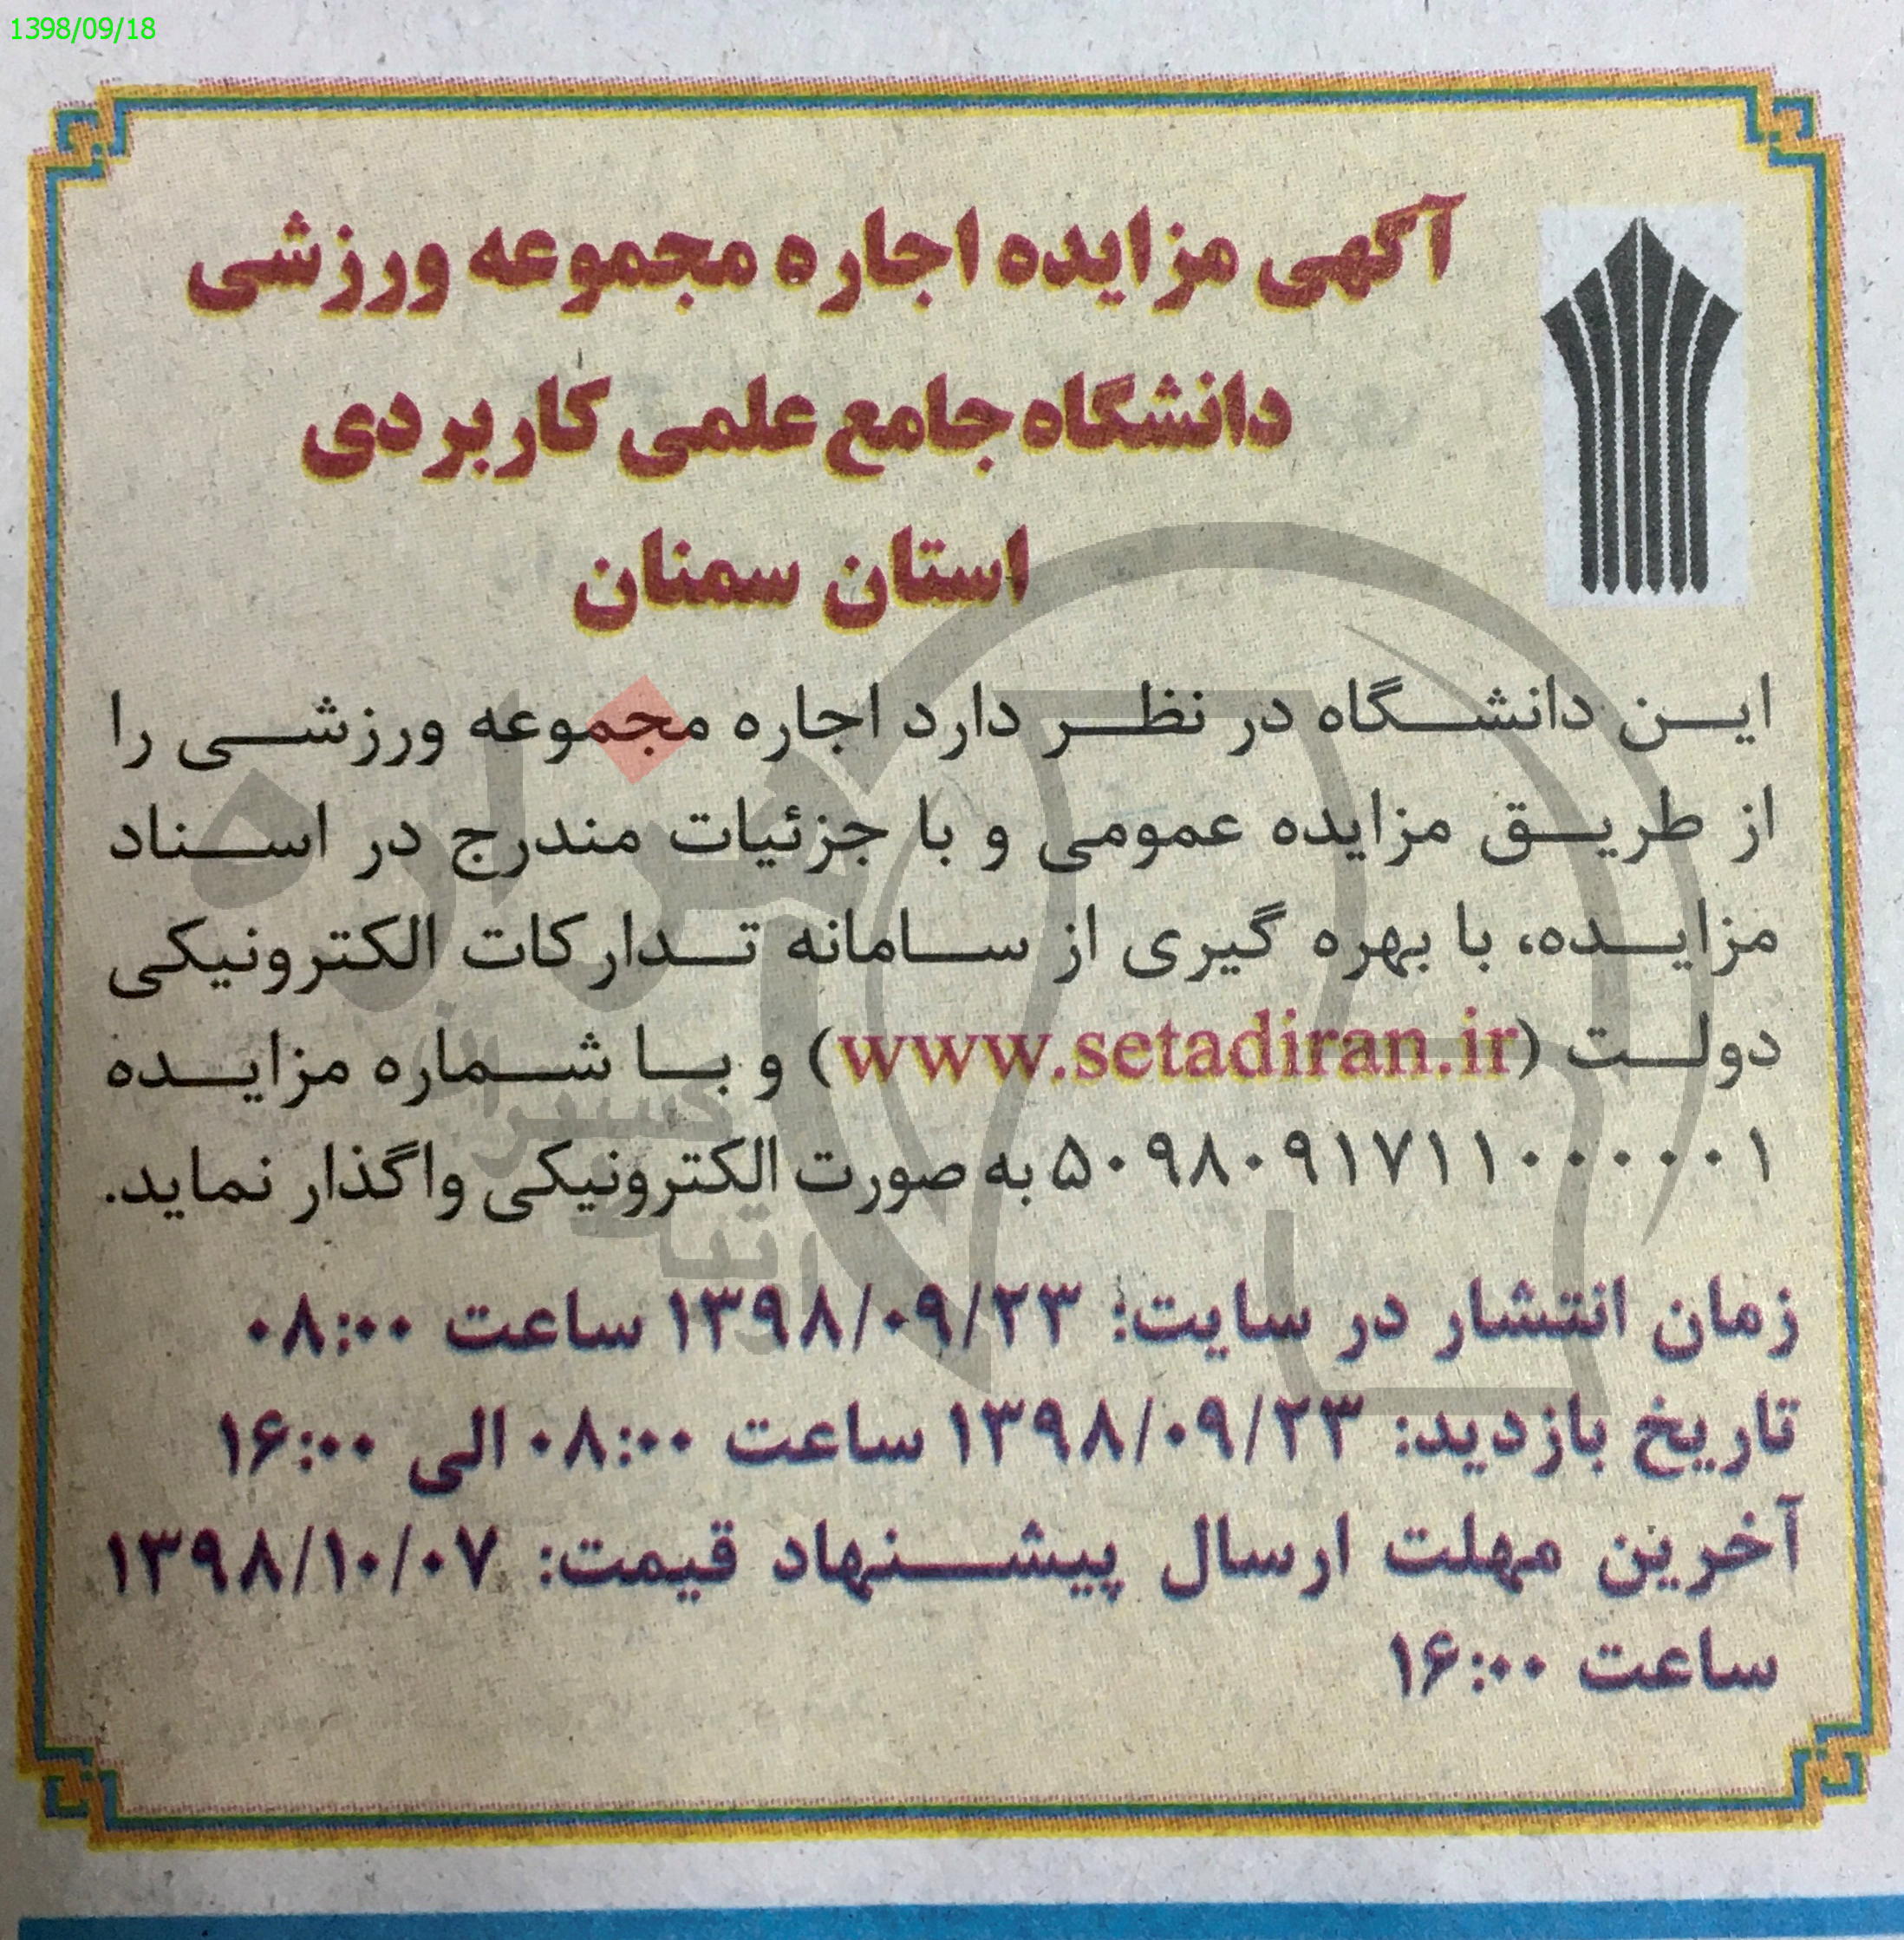 1398/09/18
آگهی مزایده اجاره مجموعه ورزشی
دانشگاه جامع علمی کاربردی
استان سمنان
این دانشگاه در نظر دارد اجاره مجموعه ورزشی را
از طریق مزایده عمومی و با جزئیات مندرج در اسناد
مزایده، با بهره گیری از سامانه تدارکات الکترونیکی
دولت (www.setadiran.ir) و با شماره مزایده
۵۰۹۸۰۹۱۷۱۱۰۰۰۰۰۱ به صورت الکترونیکی واگذار نماید.
زمان انتشار در سایت: ۱۳۹۸/۰۹/۲۳ ساعت ۰۸:۰۰
تاریخ بازدید: ۱۳۹۸/۰۹/۲۳ ساعت ۰۸:۰۰ الی ۱۶:۰۰
آخرین مهلت ارسال پیشنهاد قیمت: ۱۳۹۸/۱۰/۰۷
ساعت ۱۶:۰۰